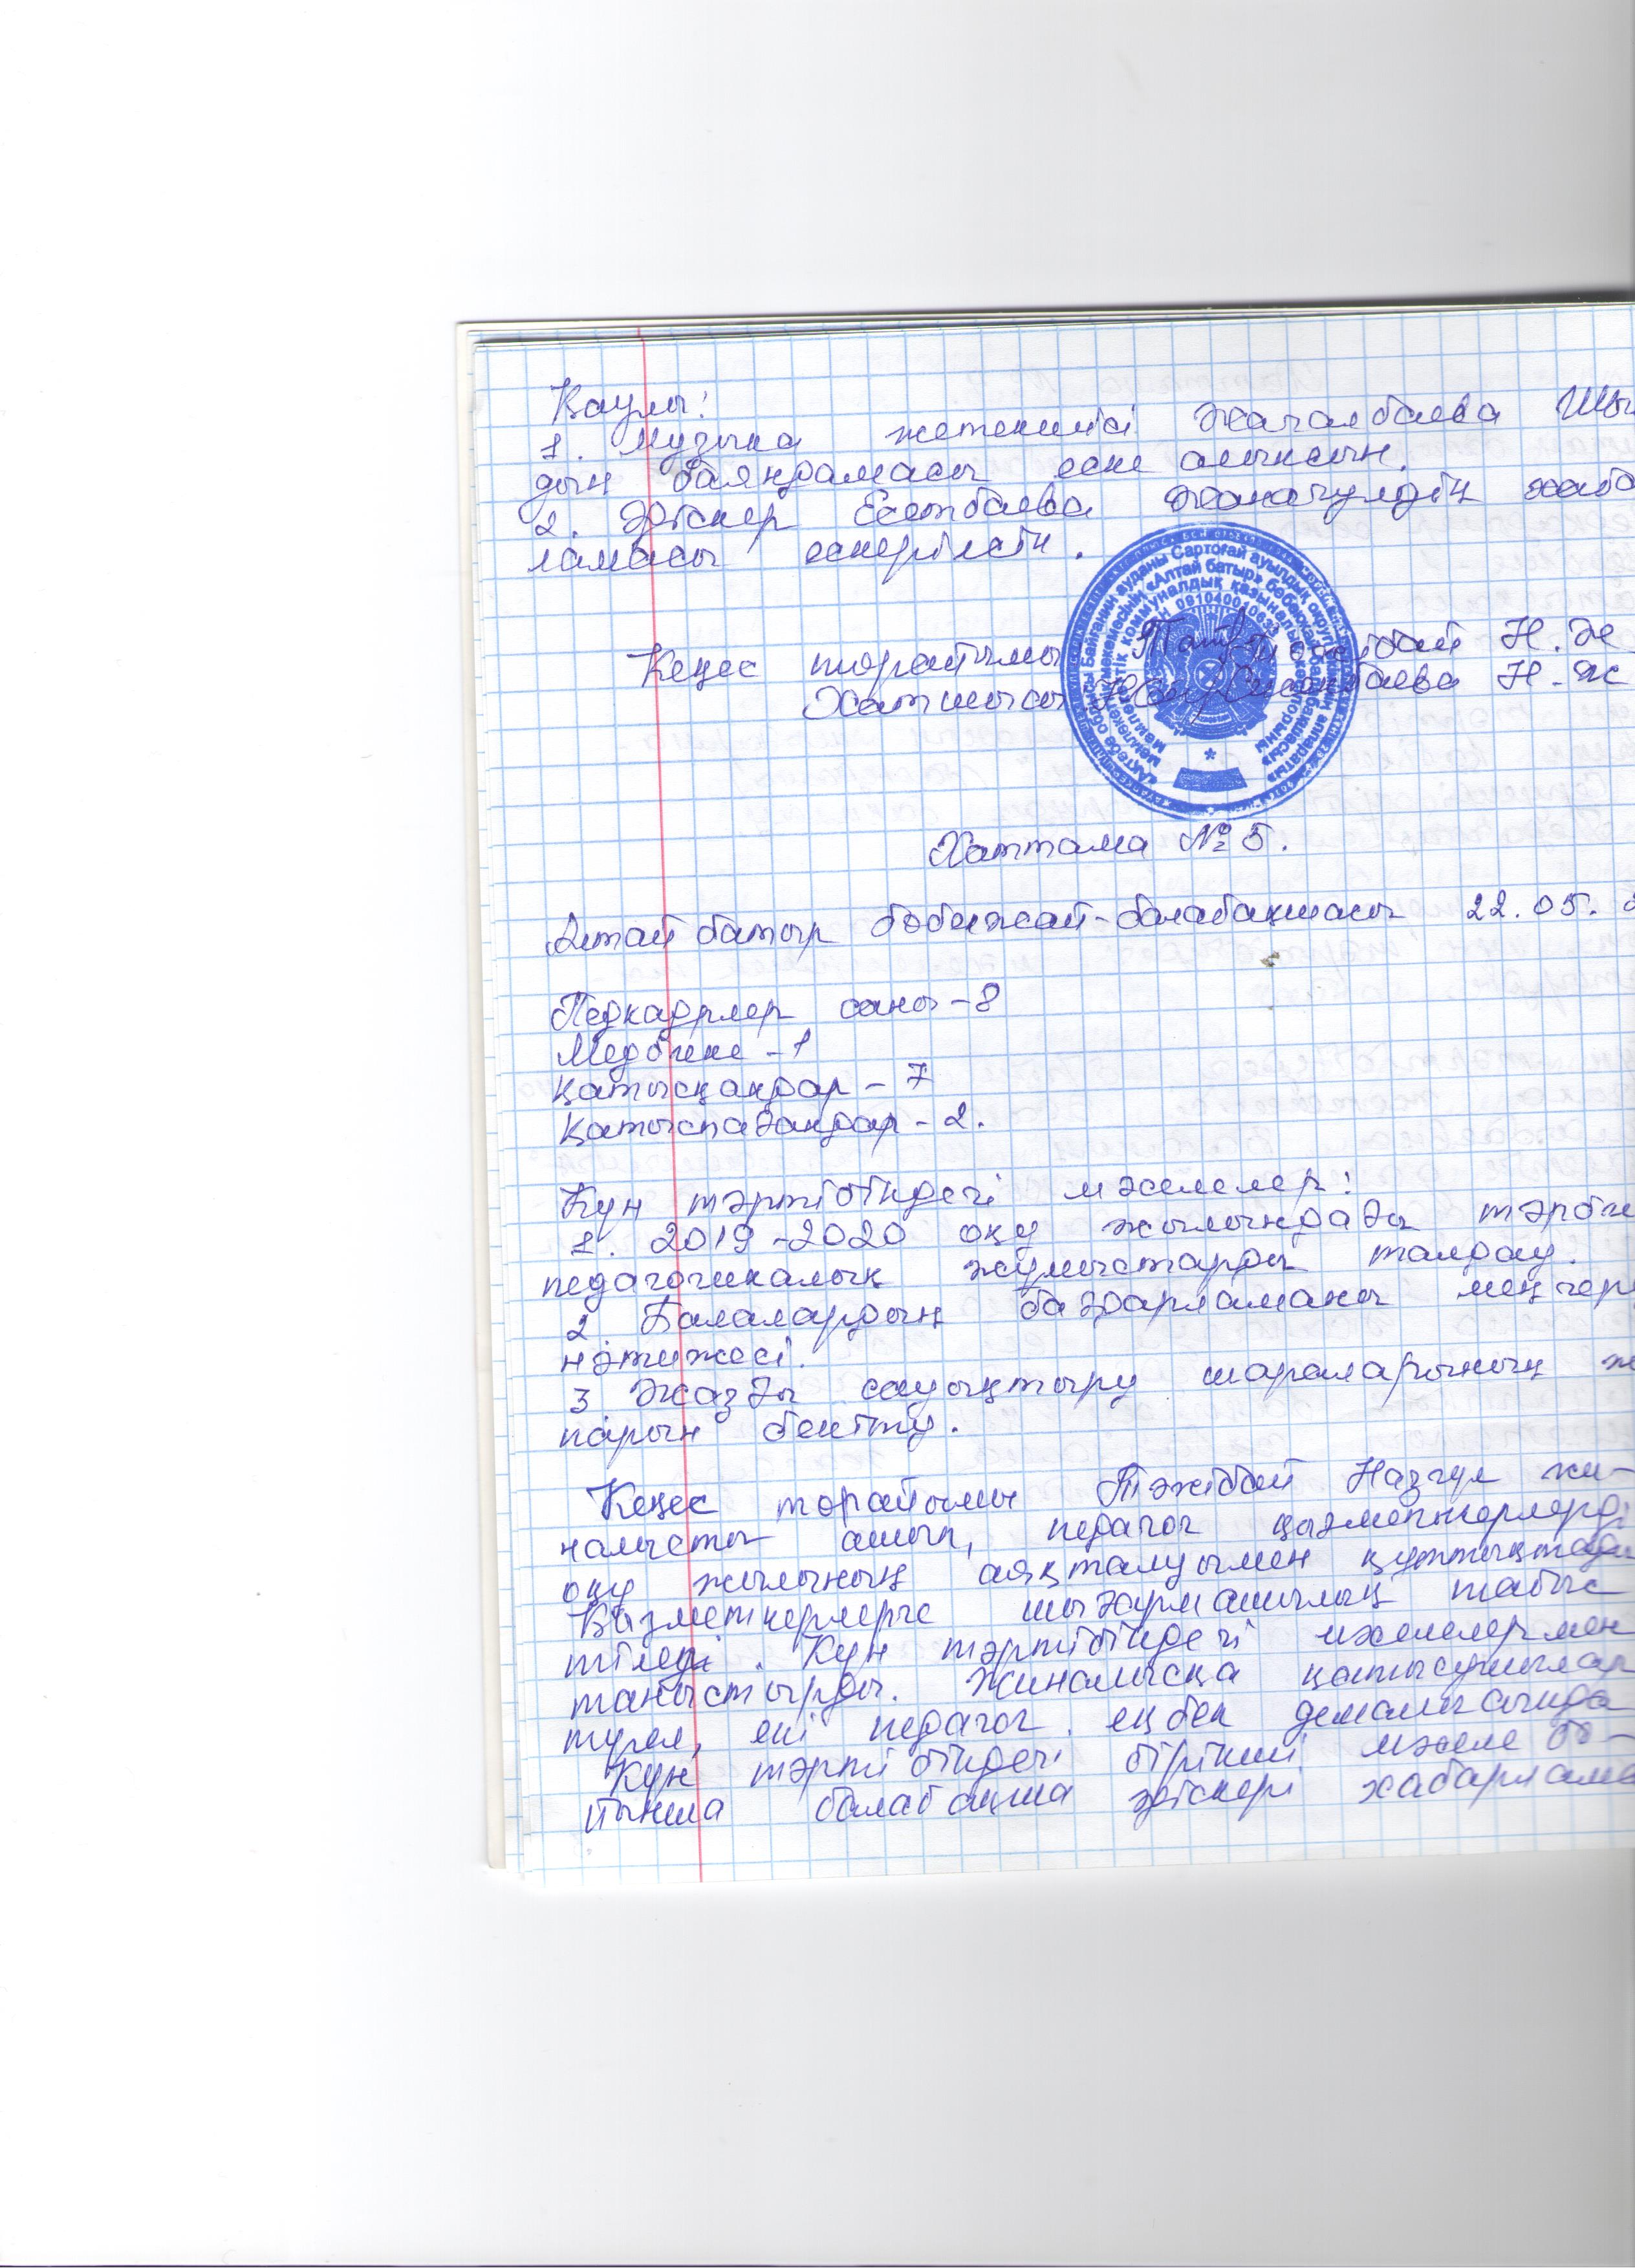 Қаулы:
1. Музыка жетекшісі Жағалбаева Шы
дың баяндамасы еске алынсын.
2. Әдіскер Есетбаева Жанагүлдің хаба
ламасы ескерілсін.
Кеңес төрайымы Тәжібай Н.Ж
Хатшысы Н.Ж
Хаттама №5.
Алтай батыр бөбекжай-балабақшасы 22.05.
Педкадрлер саны-8
Медбике-1
Қатысқандар-7
Қатыспағандар-2.
Күн тәртібіндегі мәселелер:
1. 2019-2020 оқу жылындағы тәрбие
педагогикалық жұмыстарды талдау.
2. Балалардың бағдарламаны меңгеру
нәтижесі.
3. Жазғы сауықтыру шараларының ж
парын бекіту.
Кеңес төрайымы Тәжібай Назгүл жи-
налысты ашып, педагог қызметкерлерді
оқу жылының аяқталуымен құттықтады
Қызметкерлерге шығармашылық табыс
тіледі. Күн тәртібіндегі мәселелермен
таныстырды. Жиналысқа қатысушылар
түгел, екі педагог еңбек демалысында
Күн тәртібіндегі бірінші мәселе бо-
йынша балабақша әдіскері хабарлама